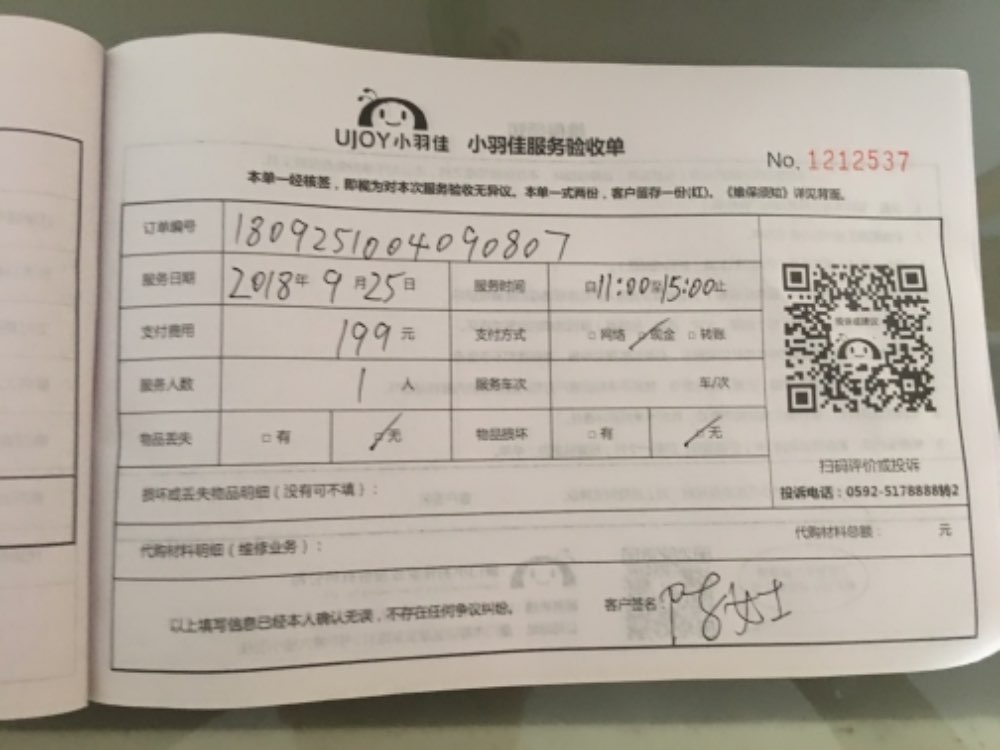 UJOY小羽佳 小羽佳服务验收单
No. 1212537
本单一经核签，即视为对本次服务验收无异议。本单一式两份，客户留存一份(红)。《维保须知》详见背面。
订单编号 1809251004090807
服务日期 2018年 9月25日 服务时间 自11:00至15:00止
支付费用 199元 支付方式 □网络 □现金 □转账
服务人数 1人 服务车次 车/次
物品丢失 □有 □无 物品损坏 □有 □无
扫码评价或投诉
投诉电话：0592-5178888转2
损坏或丢失物品明细（没有可不填）：
代购材料明细（维修业务）： 代购材料总额： 元
以上填写信息已经本人确认无误，不存在任何争议纠纷。 客户签名： 女士